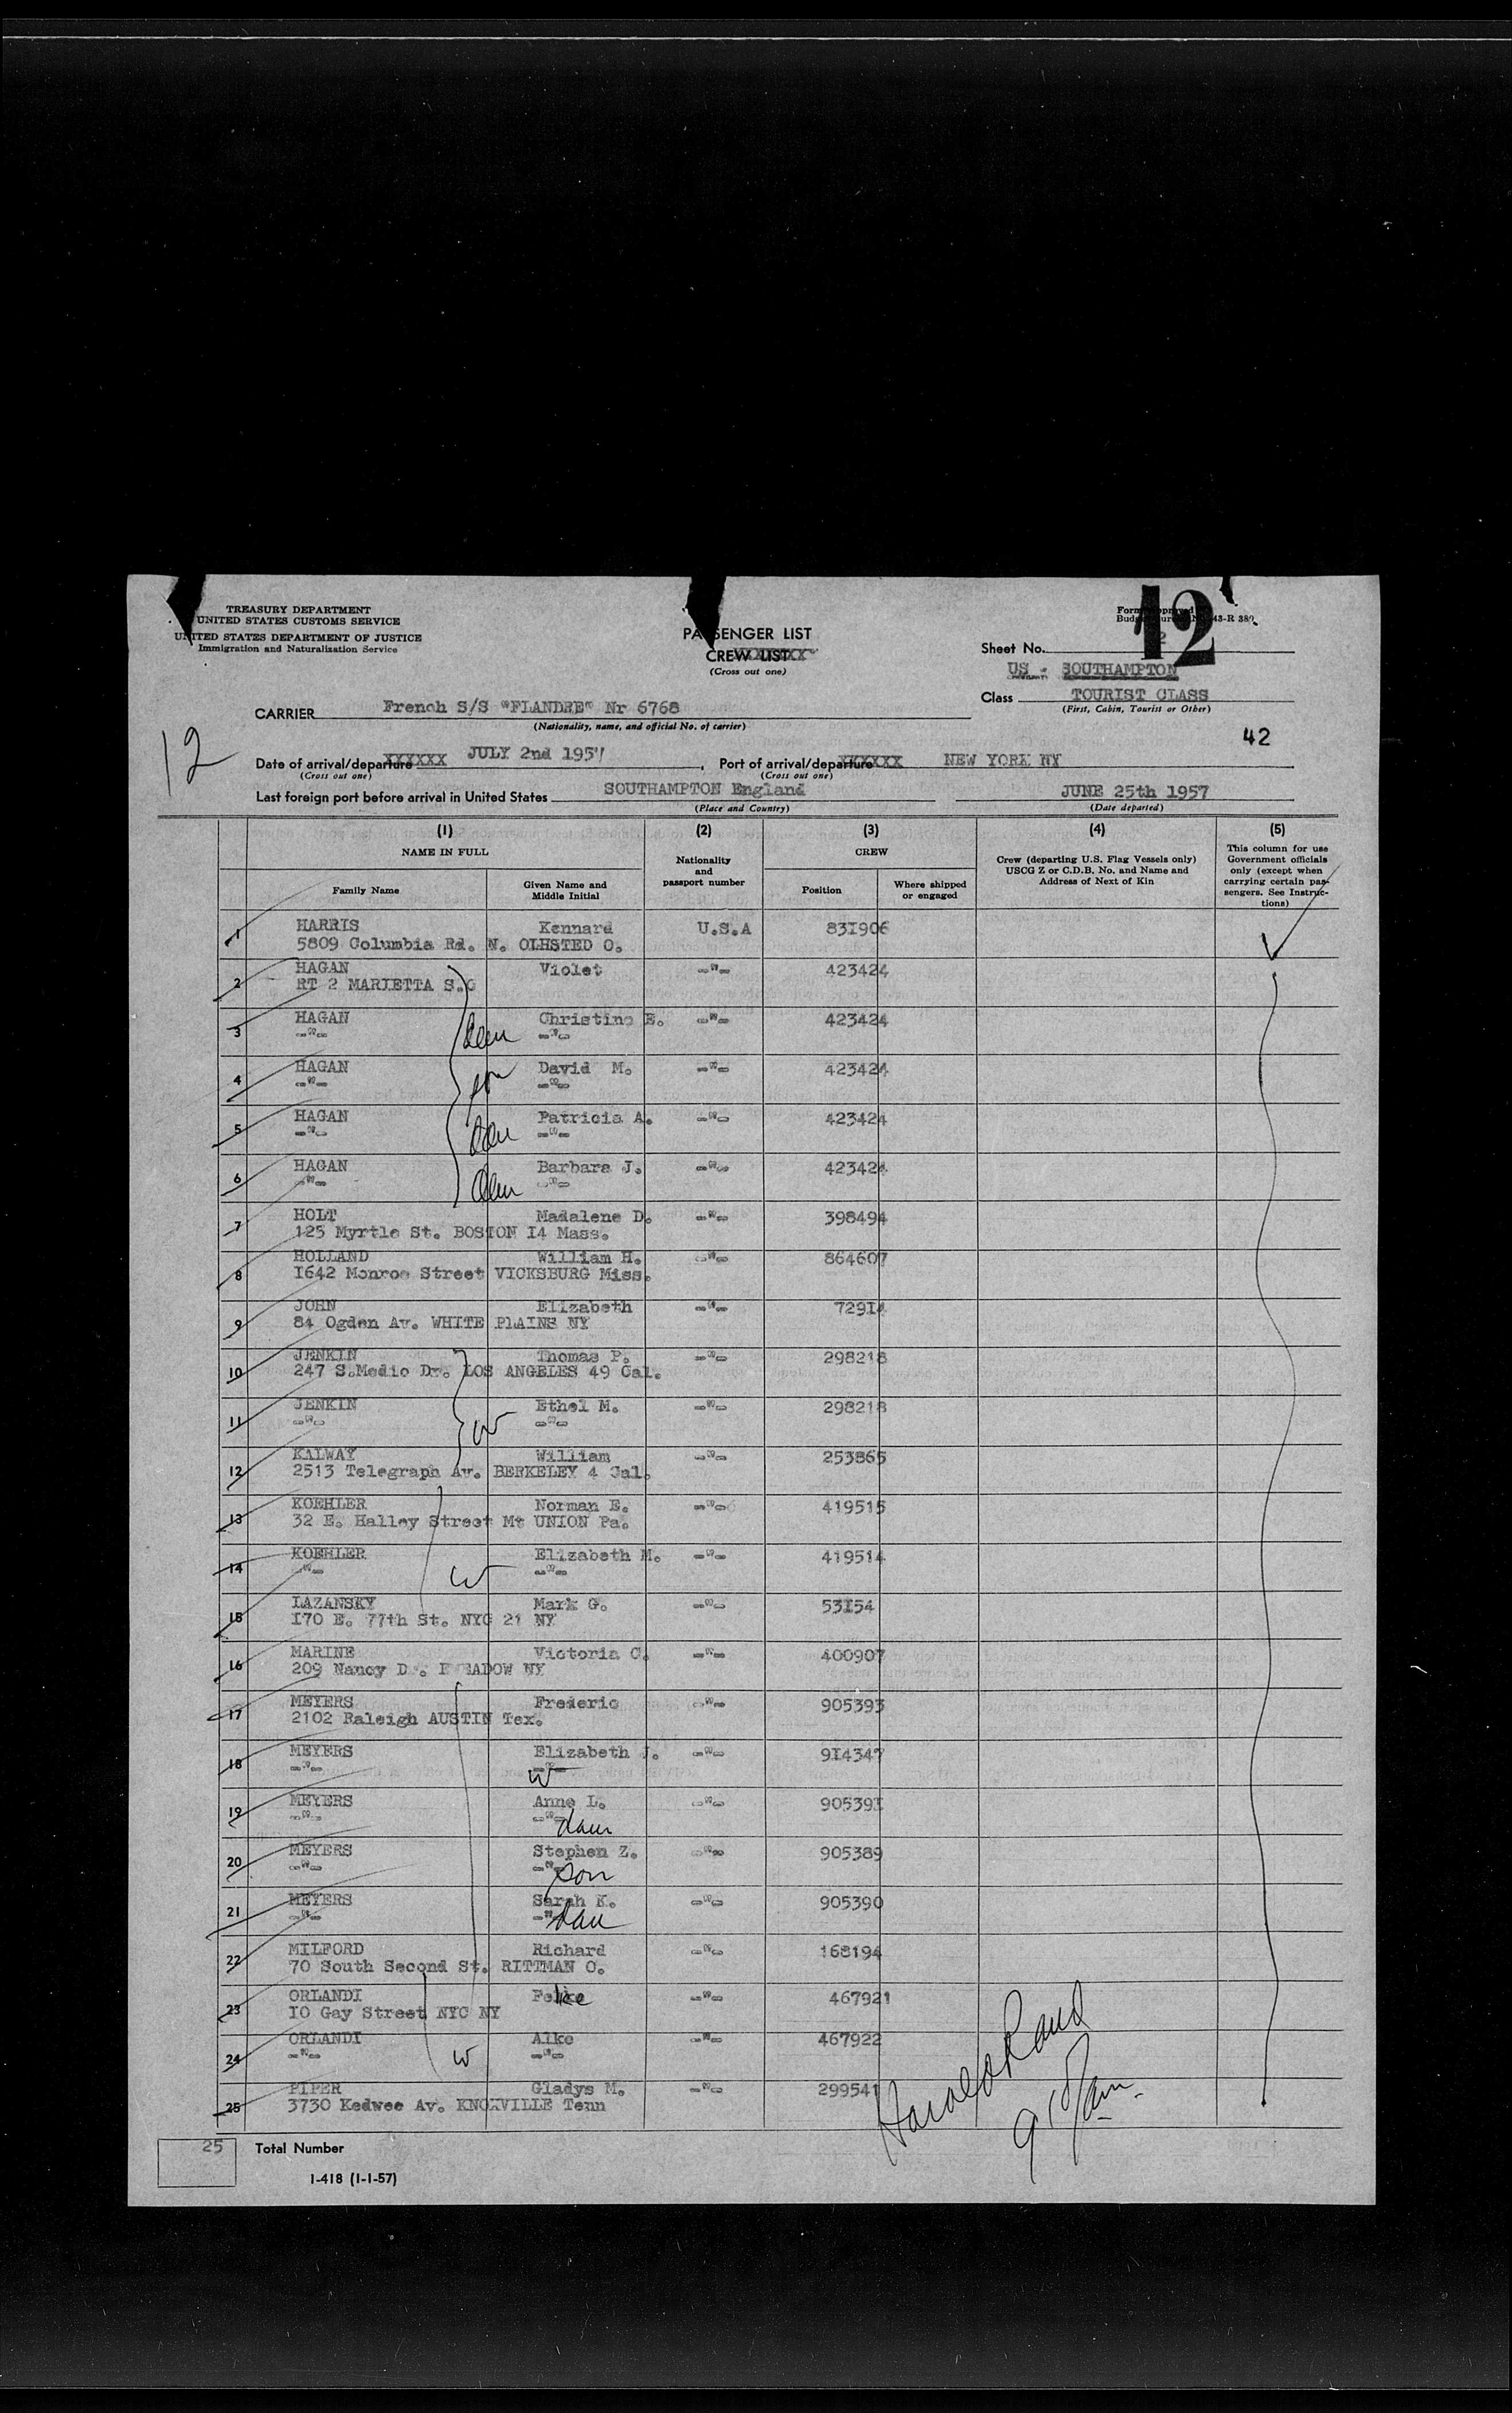 TREASURY DEPARTMENT
UNITED STATES CUSTOMS SERVICE
UNITED STATES DEPARTMENT OF JUSTICE
Immigration and Naturalization Service
PASSENGER LIST
CREW LIST
(Cross out one)
12
Sheet No.
US - SOUTHAMPTON
Class TOURIST CLASS
(First, Cabin, Tourist or Other)
CARRIER French S/S "FLANDRE" Nr 6768
(Nationality, name, and official No. of carrier)
42
12
Date of arrival/departure XXXXXX JULY 2nd 1957, Port of arrival/departure XXXXXX NEW YORK NY
(Cross out one) (Cross out one)
Last foreign port before arrival in United States SOUTHAMPTON England JUNE 25th 1957
(Place and Country) (Date departed)
(1) (2) (3) (4) (5)
NAME IN FULL
Family Name
Given Name and Middle Initial
Nationality and passport number
CREW
Position
Where shipped or engaged
Crew (departing U.S. Flag Vessels only) USCG Z or C.D.B. No. and Name and Address of Next of Kin
This column for use Government officials only (except when carrying certain passengers. See Instructions)
1 HARRIS Kennard U.S.A 83I906
5809 Columbia Rd. N. OLHSTED O.
2 HAGAN Violet -"- 423424
RT 2 MARIETTA S.C
3 HAGAN Christine E. -"- 423424
-"- dau -"-
4 HAGAN David M. -"- 423424
-"- son -"-
5 HAGAN Patricia A. -"- 423424
-"- dau -"-
6 HAGAN Barbara J. -"- 423424
-"- dau -"-
7 HOLT Madalene D. -"- 398494
125 Myrtle St. BOSTON I4 Mass.
8 HOLLAND William H. -"- 864607
I642 Monroe Street VICKSBURG Miss.
9 JOHN Elizabeth -"- 729I4
84 Ogden Av. WHITE PLAINS NY
10 JENKIN Thomas P. -"- 298218
247 S.Medio Dr. LOS ANGELES 49 Cal.
11 JENKIN Ethel M. -"- 298218
-"- W -"-
12 KALWAY William -"- 253865
2513 Telegraph Av. BERKELEY 4 Cal.
13 KOEHLER Norman E. -"- 419515
32 E. Halley Street Mt UNION Pa.
14 KOEHLER Elizabeth M. -"- 419514
-"- W -"-
15 LAZANSKY Mark G. -"- 53I54
I70 E. 77th St. NYC 21 NY
16 MARINE Victoria C. -"- 400907
209 Nancy NY
17 MEYERS Frederic -"- 905393
2102 Raleigh AUSTIN Tex.
18 MEYERS Elizabeth J. -"- 9I4347
-"- -"- W
19 MEYERS Anne L. -"- 90539I
-"- -"- dau
20 MEYERS Stephen Z. -"- 905389
-"- -"- son
21 MEYERS Sarah K. -"- 905390
-"- -"- dau
22 MILFORD Richard -"- 168194
70 South Second St. RITTMAN O.
23 ORLANDI Felice -"- 467921
IO Gay Street NYC NY
24 ORLANDI Alke -"- 467922
-"- W -"-
25 PIPER Gladys M. -"- 299541
3730 Kedwee Av. KNOXVILLE Tenn
25 Total Number
I-418 (1-1-57)